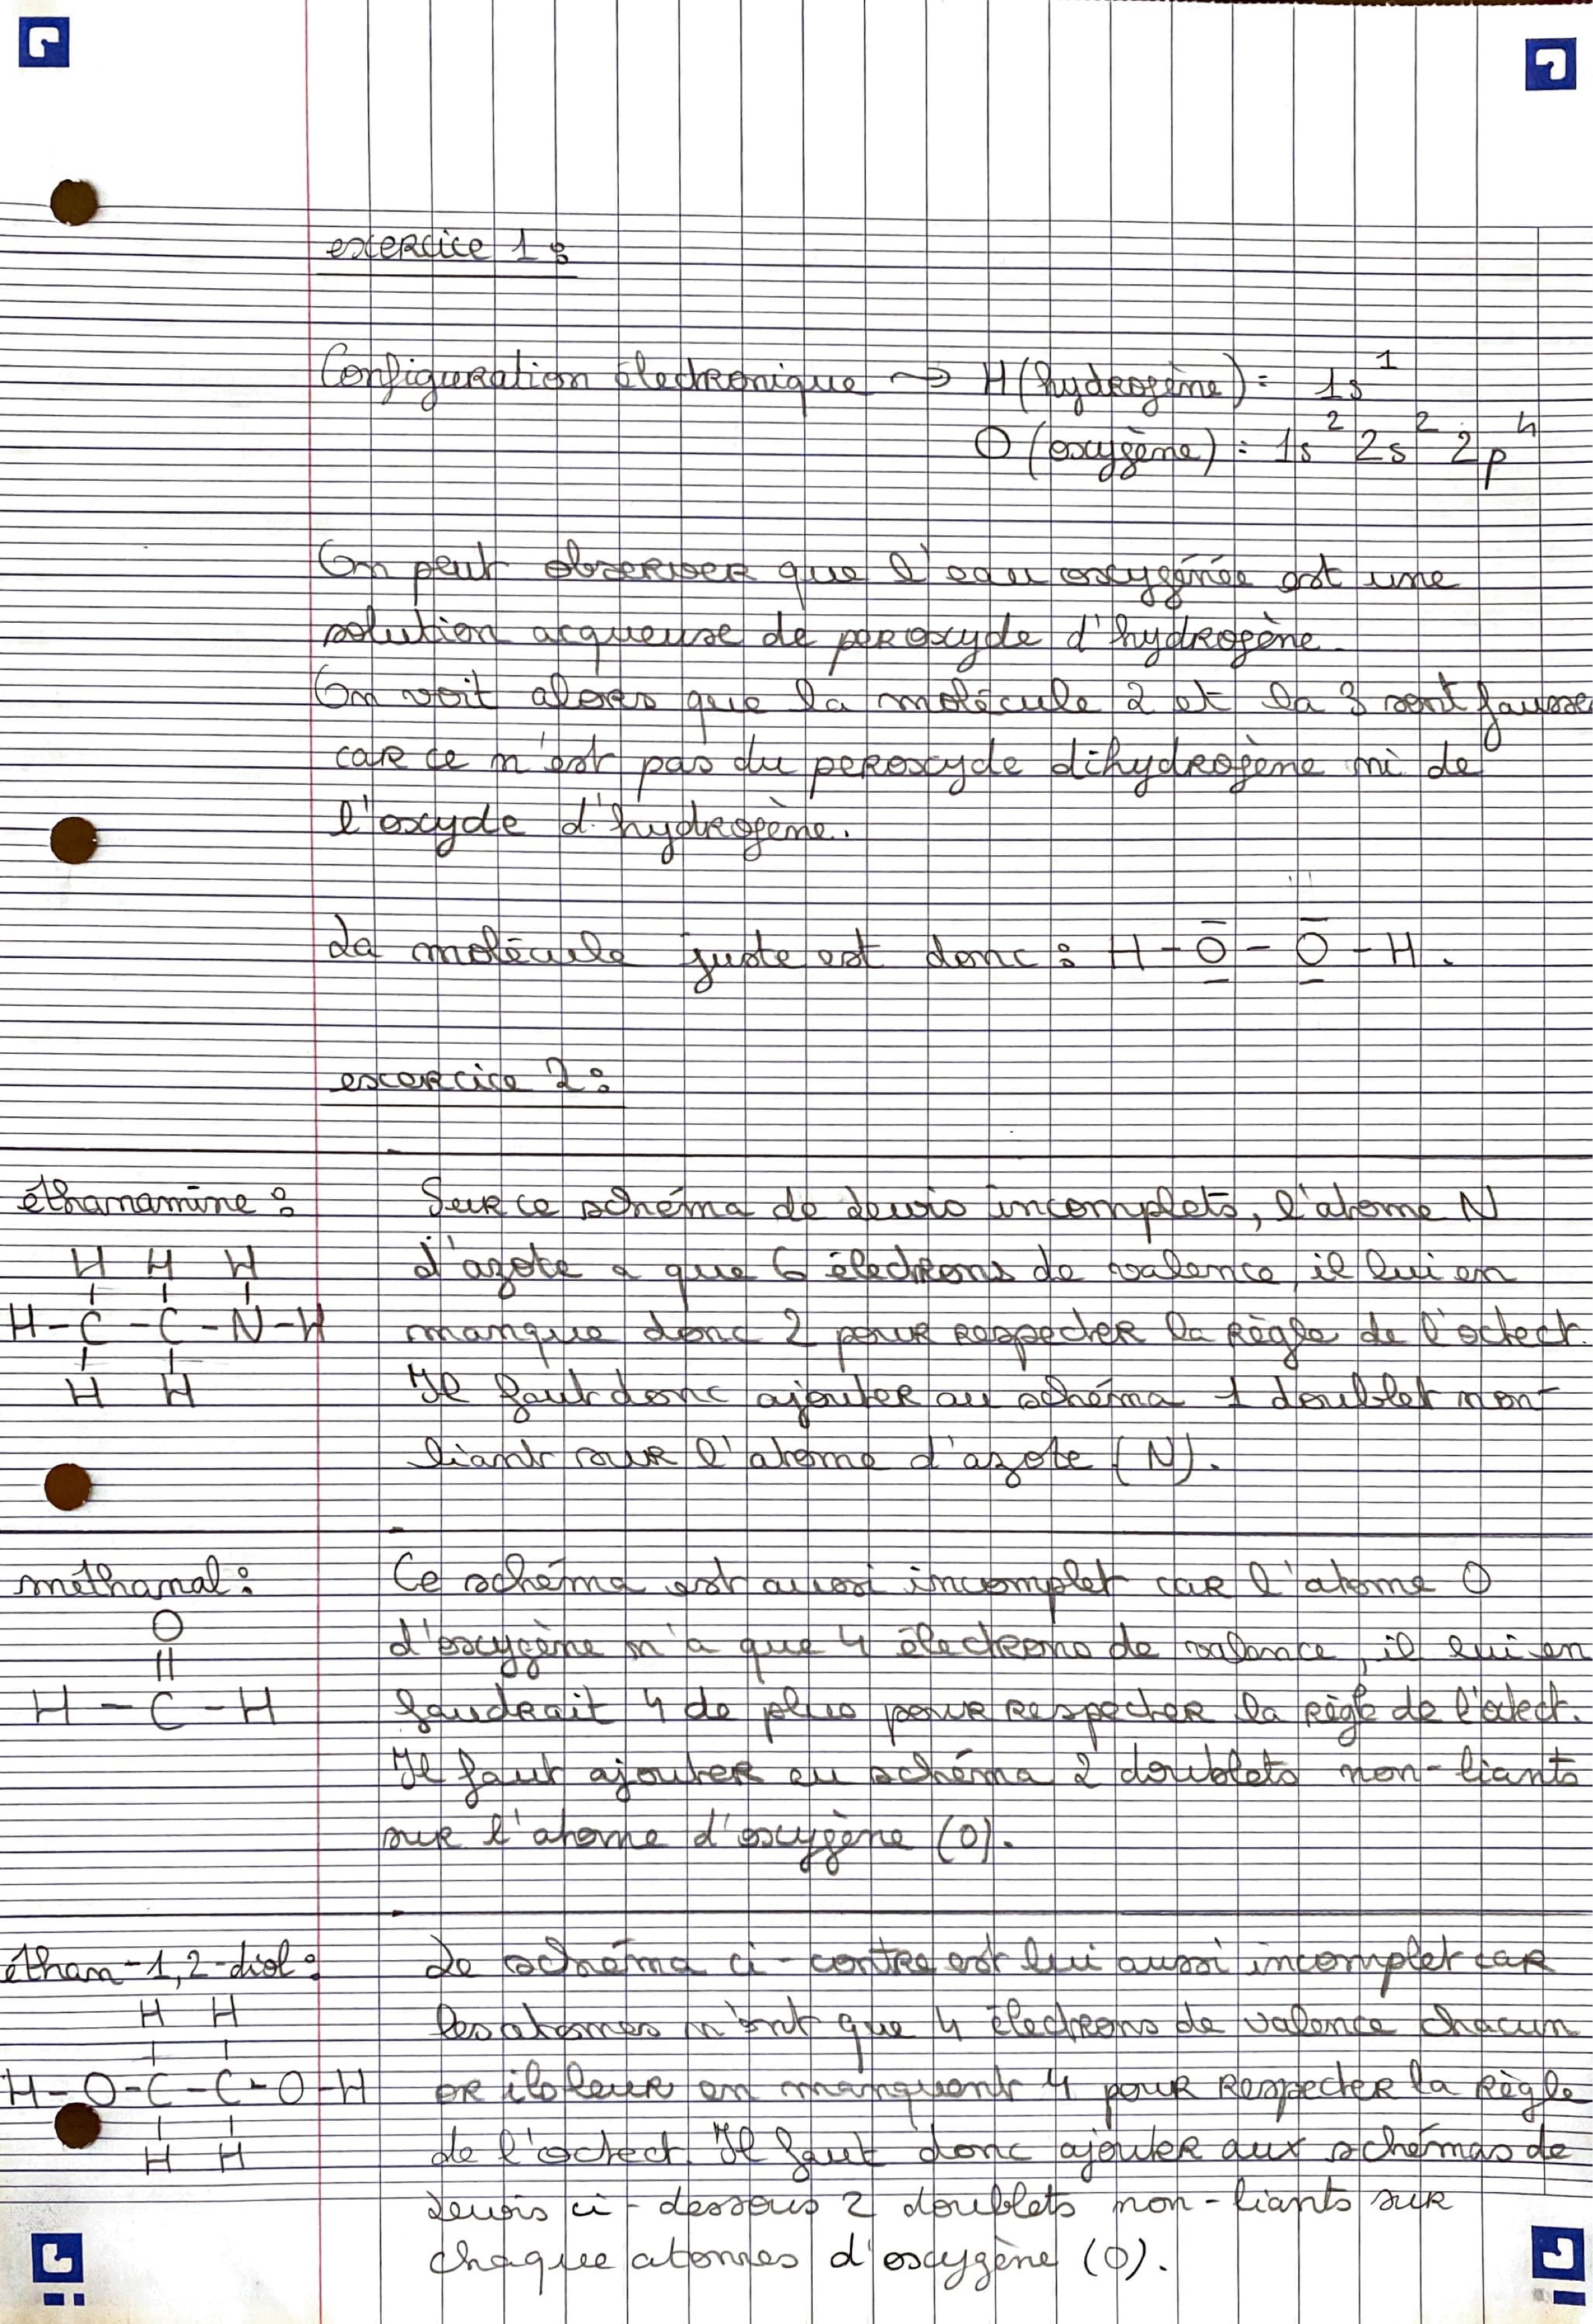 exercice 1 :
Configuration électronique → H (hydrogène) = 1s¹
O (oxygène) = 1s² 2s² 2p⁴
On peut observer que l'eau oxygénée est une
solution acqueuse de peroxyde d'hydrogène.
On voit alors que la molécule 2 et la 3 sont fausse
car ce n'est pas du peroxyde dihydrogène ni de
l'oxyde d'hydrogène.
La molécule juste est donc : H - O̲̅ - O̲̅ - H.
exercice 2 :
éthanamine :
H H H
H - C - C - N - H
H H
Sur ce schéma de Lewis incomplets, l'atome N
d'azote a que 6 électrons de valence, il lui en
manque donc 2 pour respecter la règle de l'octect.
Il faut donc ajouter au schéma 1 doublet non-
liant sur l'atome d'azote (N).
méthanal :
O
||
H - C - H
Ce schéma est aussi incomplet car l'atome O
d'oxygène n'a que 4 électrons de valence, il lui en
faudrait 4 de plus pour respecter la règle de l'octect.
Il faut ajouter au schéma 2 doublets non-liants
sur l'atome d'oxygène (O).
éthan-1,2-diol :
H H
H - O - C - C - O - H
H H
Le schéma ci-contre est lui aussi incomplet car
les atomes n'ont que 4 électrons de valence chacun
or ils leur en manquent 4 pour respecter la règle
de l'octect. Il faut donc ajouter aux schémas de
Lewis ci-dessous 2 doublets non-liants sur
chaque atomes d'oxygène (O).